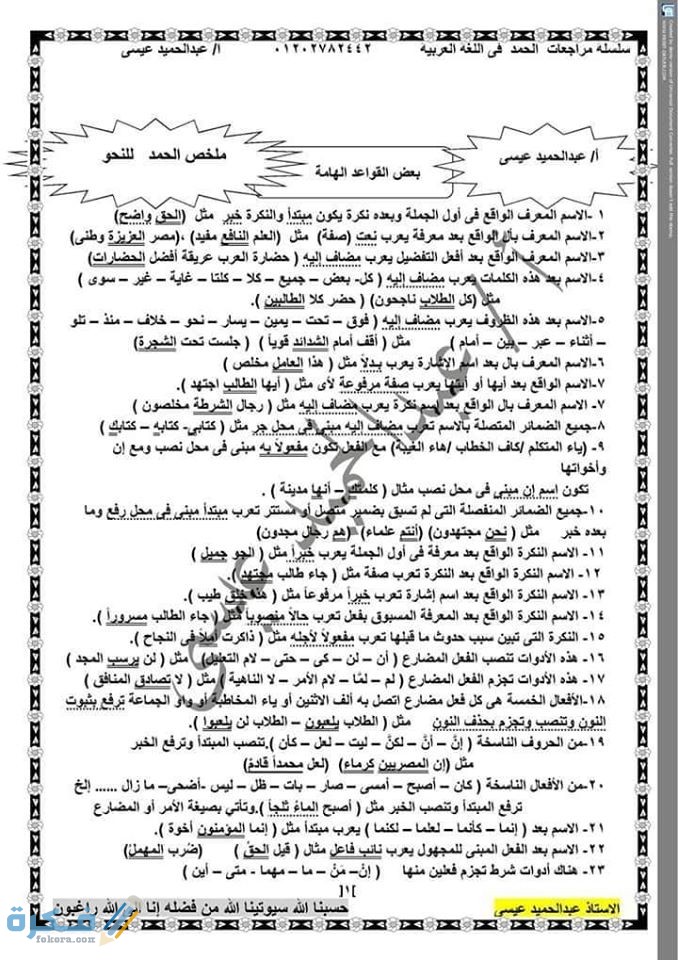 سلسله مراجعات الحمد فى اللغه العربيه ٠١٢٠٢٧٨٢٤٤٢ ا/ عبدالحميد عيسى
أ/ عبدالحميد عيسى
بعض القواعد الهامة
ملخص الحمد للنحو
١ -الاسم المعرف الواقع فى أول الجملة وبعده نكرة يكون مبتدأ والنكرة خبر مثل (الحق واضح)
٢-الاسم المعرف بال الواقع بعد معرفة يعرب نعت (صفة) مثل (العلم النافع مفيد) ،(مصر العزيزة وطنى)
٣-الاسم المعرف الواقع بعد أفعل التفضيل يعرب مضاف إليه ( حضارة العرب عريقة أفضل الحضارات)
٤-الاسم بعد هذه الكلمات يعرب مضاف إليه ( كل- بعض – جميع – كلا – كلتا – غاية – غير – سوى )
مثل (كل الطلاب ناجحون) ( حضر كلا الطالبين ).
٥-الاسم بعد هذه الظروف يعرب مضاف إليه ( فوق – تحت – يمين – يسار – نحو – خلاف – منذ – تلو
– أثناء – عبر – بين – أمام ) مثل ( أقف أمام الشدائد قوياً ) ( جلست تحت الشجرة)
٦-الاسم المعرف بال بعد اسم الإشارة يعرب بدلاً مثل ( هذا العامل مخلص )
٧-الاسم الواقع بعد أيها أو أيتها يعرب صفة مرفوعة لأى مثل ( أيها الطالب اجتهد ).
٧- الاسم المعرف بال الواقع بعد اسم نكرة يعرب مضاف إليه مثل ( رجال الشرطة مخلصون )
٨-جميع الضمائر المتصلة بالاسم تعرب مضاف إليه مبنى فى محل جر مثل ( كتابى- كتابه – كتابك )
٩- (ياء المتكلم /كاف الخطاب /هاء الغيبة) مع الفعل تكون مفعولاً به مبنى فى محل نصب ومع إن
وأخواتها
تكون اسم إن مبنى فى محل نصب مثال ( كلمتك – أنها مدينة ) .
١٠-جميع الضمائر المنفصلة التى لم تسبق بضمير متصل أو مستتر تعرب مبتدأ مبنى فى محل رفع وما
بعده خبر مثل ( نحن مجتهدون) (أنتم علماء) (هم رجال مجدون)
١١- الاسم النكرة الواقع بعد معرفة فى أول الجملة يعرب خبراً مثل ( الجو جميل )
١٢- الاسم النكرة الواقع بعد النكرة تعرب صفة مثل ( جاء طالب مجتهد ).
١٣- الاسم النكرة الواقع بعد اسم إشارة تعرب خبراً مرفوعاً مثل ( هذا خلق طيب ).
١٤- الاسم النكرة الواقع بعد المعرفة المسبوق بفعل تعرب حالاً منصوباً مثل (جاء الطالب مسروراً ).
١٥- النكرة التى تبين سبب حدوث ما قبلها تعرب مفعولاً لأجله مثل ( ذاكرت أملاً فى النجاح ).
١٦- هذه الأدوات تنصب الفعل المضارع ( أن – لن – كى – حتى – لام التعليل) مثل ( لن يرسب المجد )
١٧- هذه الأدوات تجزم الفعل المضارع ( لم – لمَّا – لام الأمر – لا الناهية ) مثل ( لا تصادق المنافق )
١٨-الأفعال الخمسة هى كل فعل مضارع اتصل به ألف الاثنين أو ياء المخاطبة أو واو الجماعة ترفع بثبوت
النون وتنصب وتجزم بحذف النون مثل ( الطلاب يلعبون – الطلاب لن يلعبوا ).
١٩-من الحروف الناسخة ( إنَّ – أنَّ – لكنَّ – ليت – لعل – كأن ).تنصب المبتدأ وترفع الخبر
مثل (إن المصريين كرماء) (لعل محمداً قادمٌ)
٢٠- من الأفعال الناسخة ( كان – أصبح – أمسى – صار – بات – ظل – ليس -أضحى- ما زال ...... إلخ
ترفع المبتدأ وتنصب الخبر مثل ( أصبح الماءُ ثلجاً ).وتأتي بصيغة الأمر أو المضارع
٢١- الاسم بعد ( إنما – كأنما – لعلما – لكنما ) يعرب مبتدأ مثل ( إنما المؤمنون أخوة ).
٢٢- الاسم بعد الفعل المبنى للمجهول يعرب نائب فاعل مثال ( قيل الحقُ ) (ضُرب المهملُ)
٢٣- هناك أدوات شرط تجزم فعلين منها (إنْ- مَنْ – ما – مهما - متى – أين )
]١[
الاستاذ عبدالحميد عيسى
حسبنا الله سيوتينا الله من فضله إنا الى الله راغبون
فكرة
fekora.com
أ/ عبدالحميد عيسى